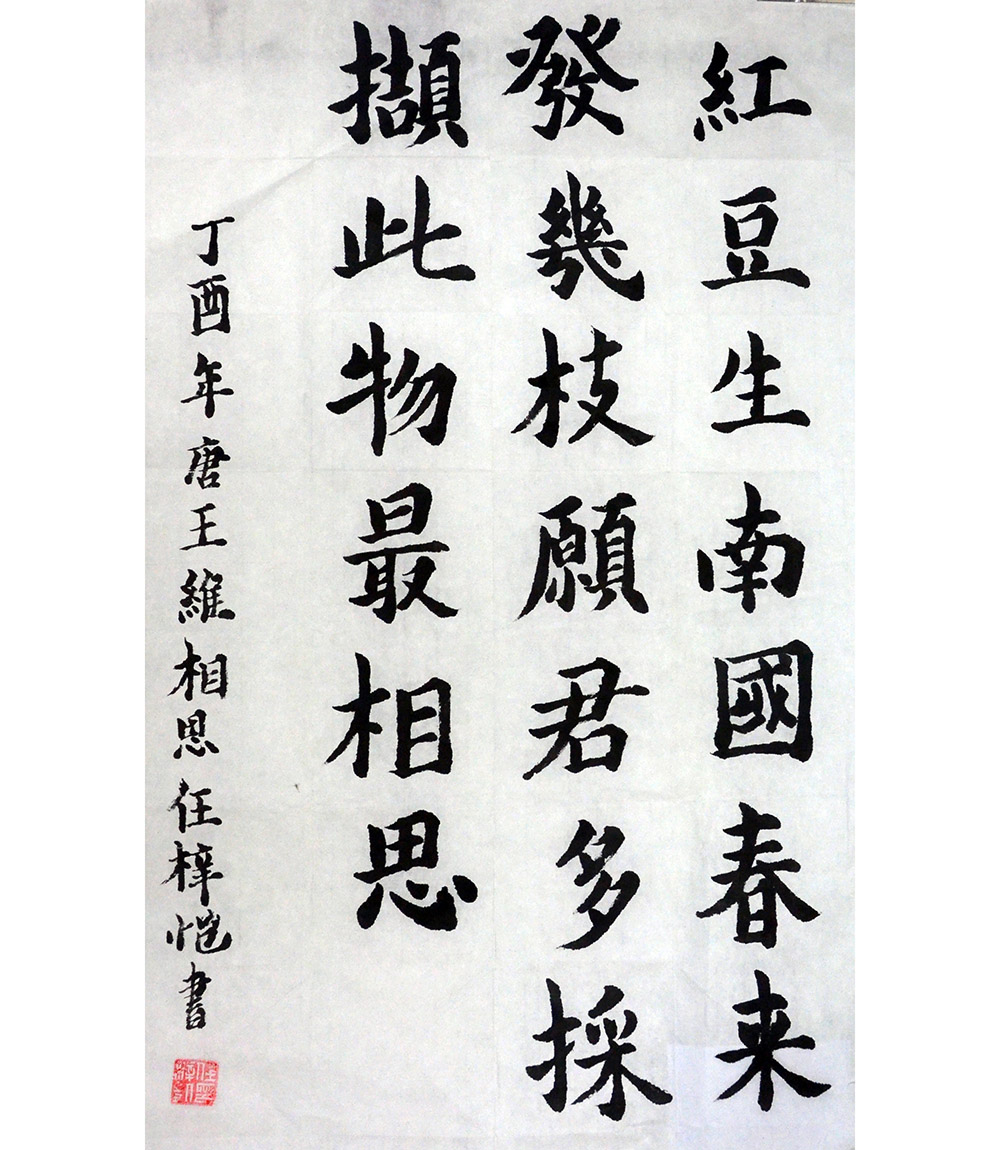 紅豆生南國春来
發幾枝願君多採
擷此物最相思
丁酉年唐王維相思任梓愷書